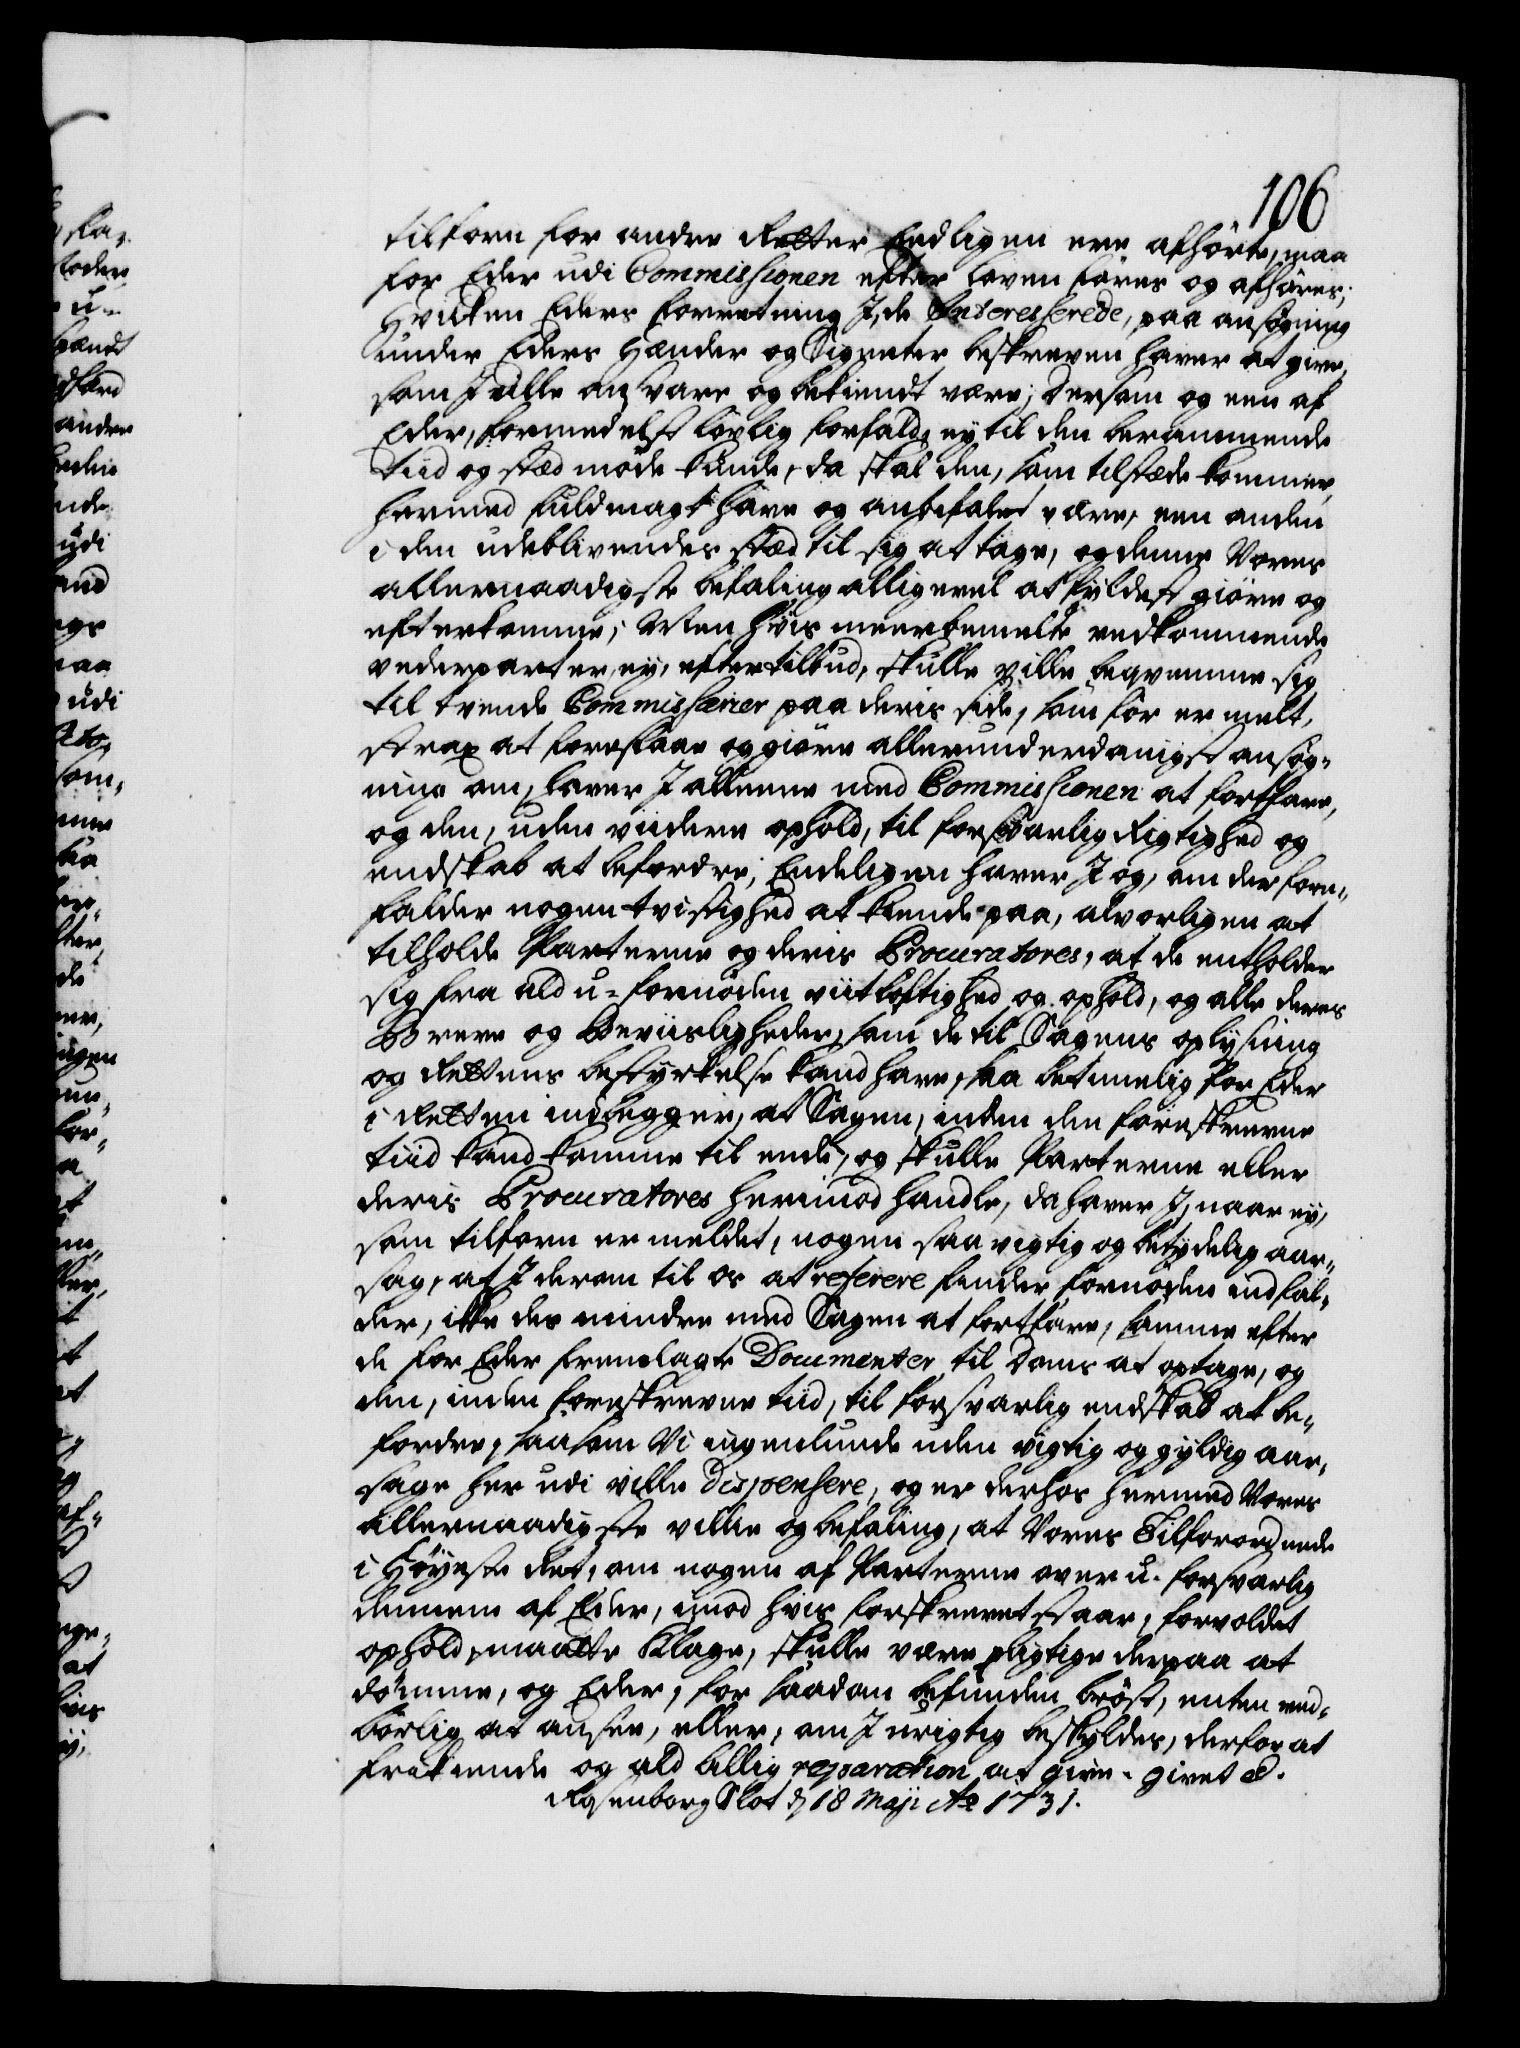 106
tilforn for andre Retter Eedligen ere afhørte, maa
for Eder udi Commissionen efter loven føres og afhøres;
Hvilken Eders forretning I, de Interesserede, paa ansøgning
under Eders Hænder og Signeter beskreven haver at give,
som I ville ansvare og bekiendt være; Dersom og een af
Eder, formedelst lovlig forfald, ey til den berammende
tiid og stæd møde kunde, da skal den, som tilstæde kommer,
hermed fuldmagt have og anbefalet være, een anden
i den udeblivendes stæd til sig at tage, og denne Vores
allernaadigste befaling alligevel at fyldest giøre og
efterkomme; Men hvis meerbemelte vedkommende
vederparter, ey, efter tilbud, skulle ville beqvemme sig
til tvende Commissarier paa deris side, som før er melt,
strax at foreslaae og giøre allerunderdanigst ansøg-
ning om, haver I alleene med Commissionen at fortfare,
og den, uden viidere ophold, til forsvarlig Rigtighed og
endskab at befordre; Endeligen haver I og, om der fore-
falder nogen tvistighed at kiende paa, alvorligen at
tilholde Parterne og deris Procuratores, at de entholder
sig fra ald u-fornøden viitløftighed og ophold, og alle deres
Breve og Beviisligheder, som de til Sagens oplysning
og Rettens bestyrkelse kand have, saa betimelig for Eder
i Retten indlegger, at Sagen, inden den foreskrevne
tiid kand komme til ende, og skulle Parterne eller
deris Procuratores herimod handle, da haver I, naar ey,
som tilforn er meldet, nogen saa vigtig og betydelig aar-
sag, at I derom til os at referere finder fornøden indfal-
der, ikke des mindre med Sagen at fortfare, samme efter
de for Eder fremlagte Documenter til Doms at optage, og
den, inden foreskrevne tiid, til forsvarlig endskab at be-
fordre, saasom Vi ingenlunde uden vigtig og gyldig aar-
sage her udi ville dispensere, og er derhos hermed Vores
allernaadigste villie og befaling, at Vores Tilforordnede
i Høyeste Ret, om nogen af Parterne over u-forsvarlig
dennem af Eder, imod hvis forskrevet staar, forvoldet
ophold, maatte klage, skulle være pligtige derpaa at
dømme, og Eder, for saadan befunden brøst, enten ved-
børlig at ansee, eller, om I urigtig beskyldes, derfor at
frikiende og ald billig reparation at give. Givet &.
Rosenborg Slot d 18 Maji Ao 1731.